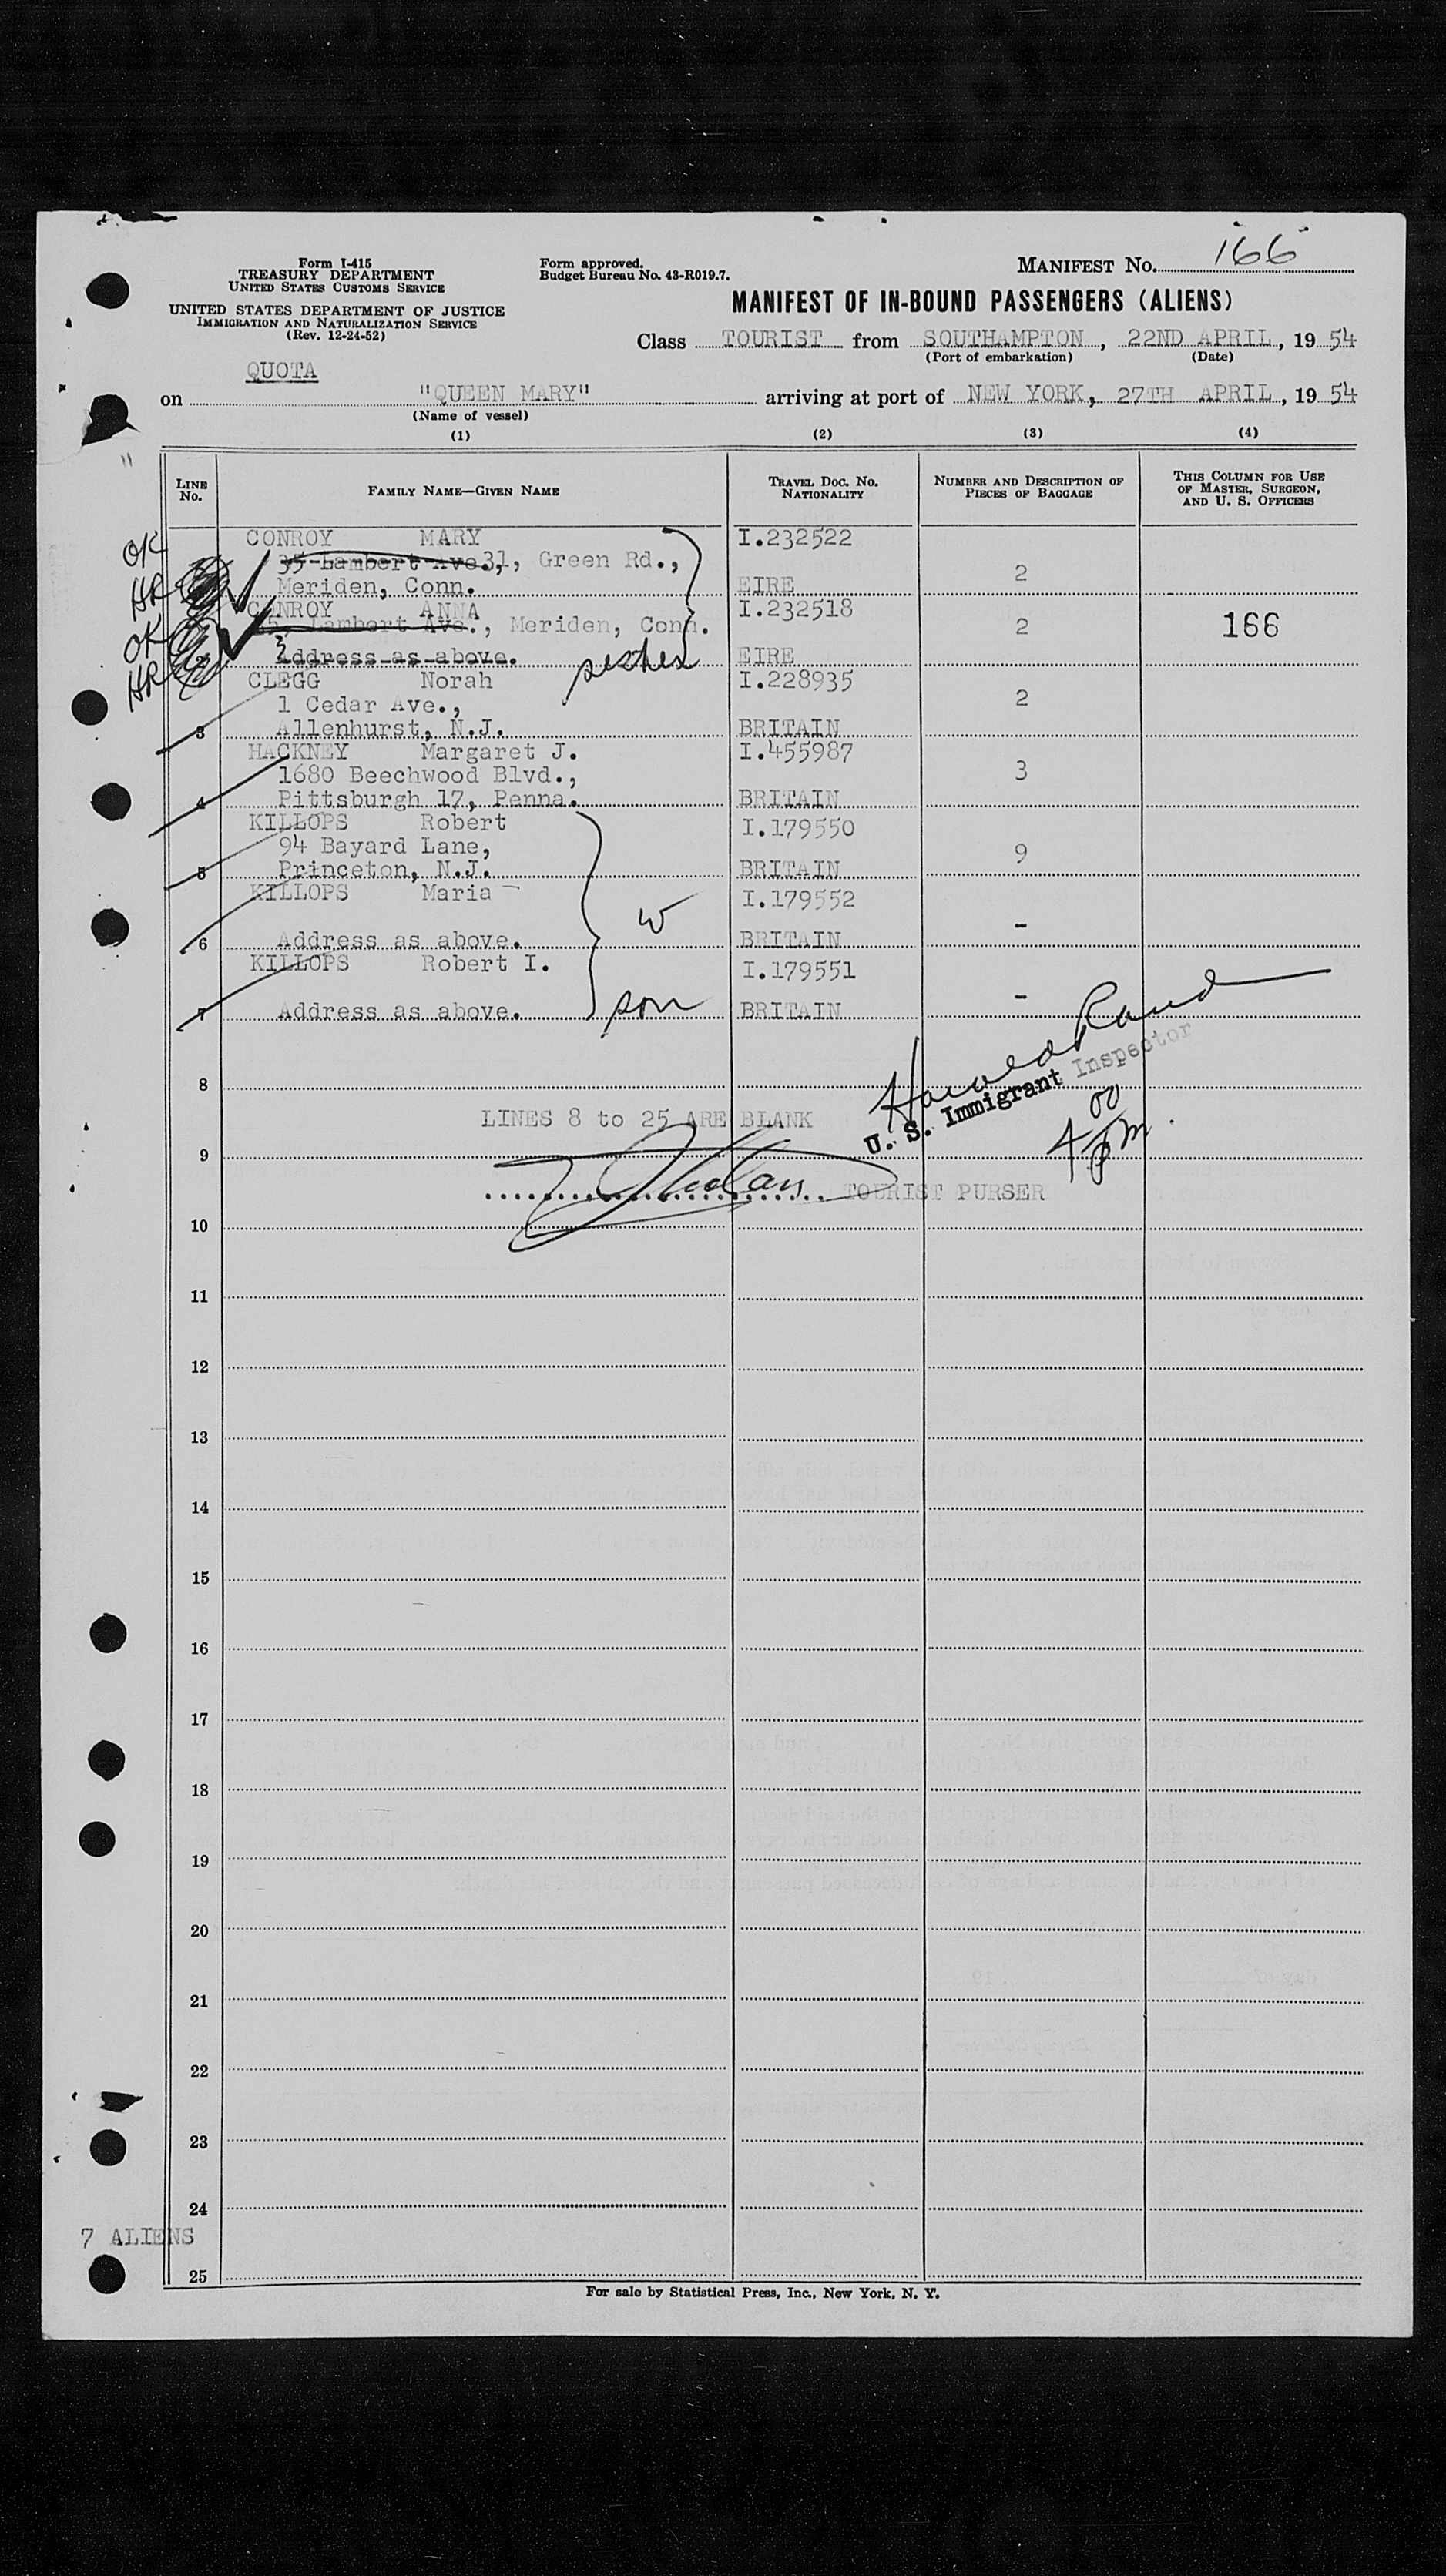 Form I-415
TREASURY DEPARTMENT
UNITED STATES CUSTOMS SERVICE
UNITED STATES DEPARTMENT OF JUSTICE
IMMIGRATION AND NATURALIZATION SERVICE
(Rev. 12-24-52)
Form approved.
Budget Bureau No. 43-R019.7.
MANIFEST No. 166
MANIFEST OF IN-BOUND PASSENGERS (ALIENS)
Class TOURIST from SOUTHAMPTON, 22ND APRIL, 19 54
(Port of embarkation) (Date)
QUOTA
on "QUEEN MARY" arriving at port of NEW YORK, 27TH APRIL, 19 54
(Name of vessel)
(1) (2) (3) (4)
LINE No. FAMILY NAME—GIVEN NAME TRAVEL DOC. NO. NATIONALITY NUMBER AND DESCRIPTION OF PIECES OF BAGGAGE THIS COLUMN FOR USE OF MASTER, SURGEON, AND U. S. OFFICERS
OK CONROY MARY I.232522
35 Lambert Ave 31, Green Rd., 2
HR Meriden, Conn. EIRE
CONROY ANNA I.232518
OK Lambert Ave., Meriden, Conn. 2 166
HR Address as above. sisters EIRE
CLEGG Norah I.228935
1 Cedar Ave., 2
3 Allenhurst, N.J. BRITAIN
HACKNEY Margaret J. I.455987
1680 Beechwood Blvd., 3
4 Pittsburgh 17, Penna. BRITAIN
KILLOPS Robert I.179550
94 Bayard Lane, 9
5 Princeton, N.J. BRITAIN
KILLOPS Maria I.179552
w -
6 Address as above. BRITAIN
KILLOPS Robert I. I.179551
7 Address as above. son BRITAIN -
Harold Rand
U. S. Immigrant Inspector
4 00 pm
8
LINES 8 to 25 ARE BLANK
9
TOURIST PURSER
10
11
12
13
14
15
16
17
18
19
20
21
22
23
24
7 ALIENS
25
For sale by Statistical Press, Inc., New York, N. Y.